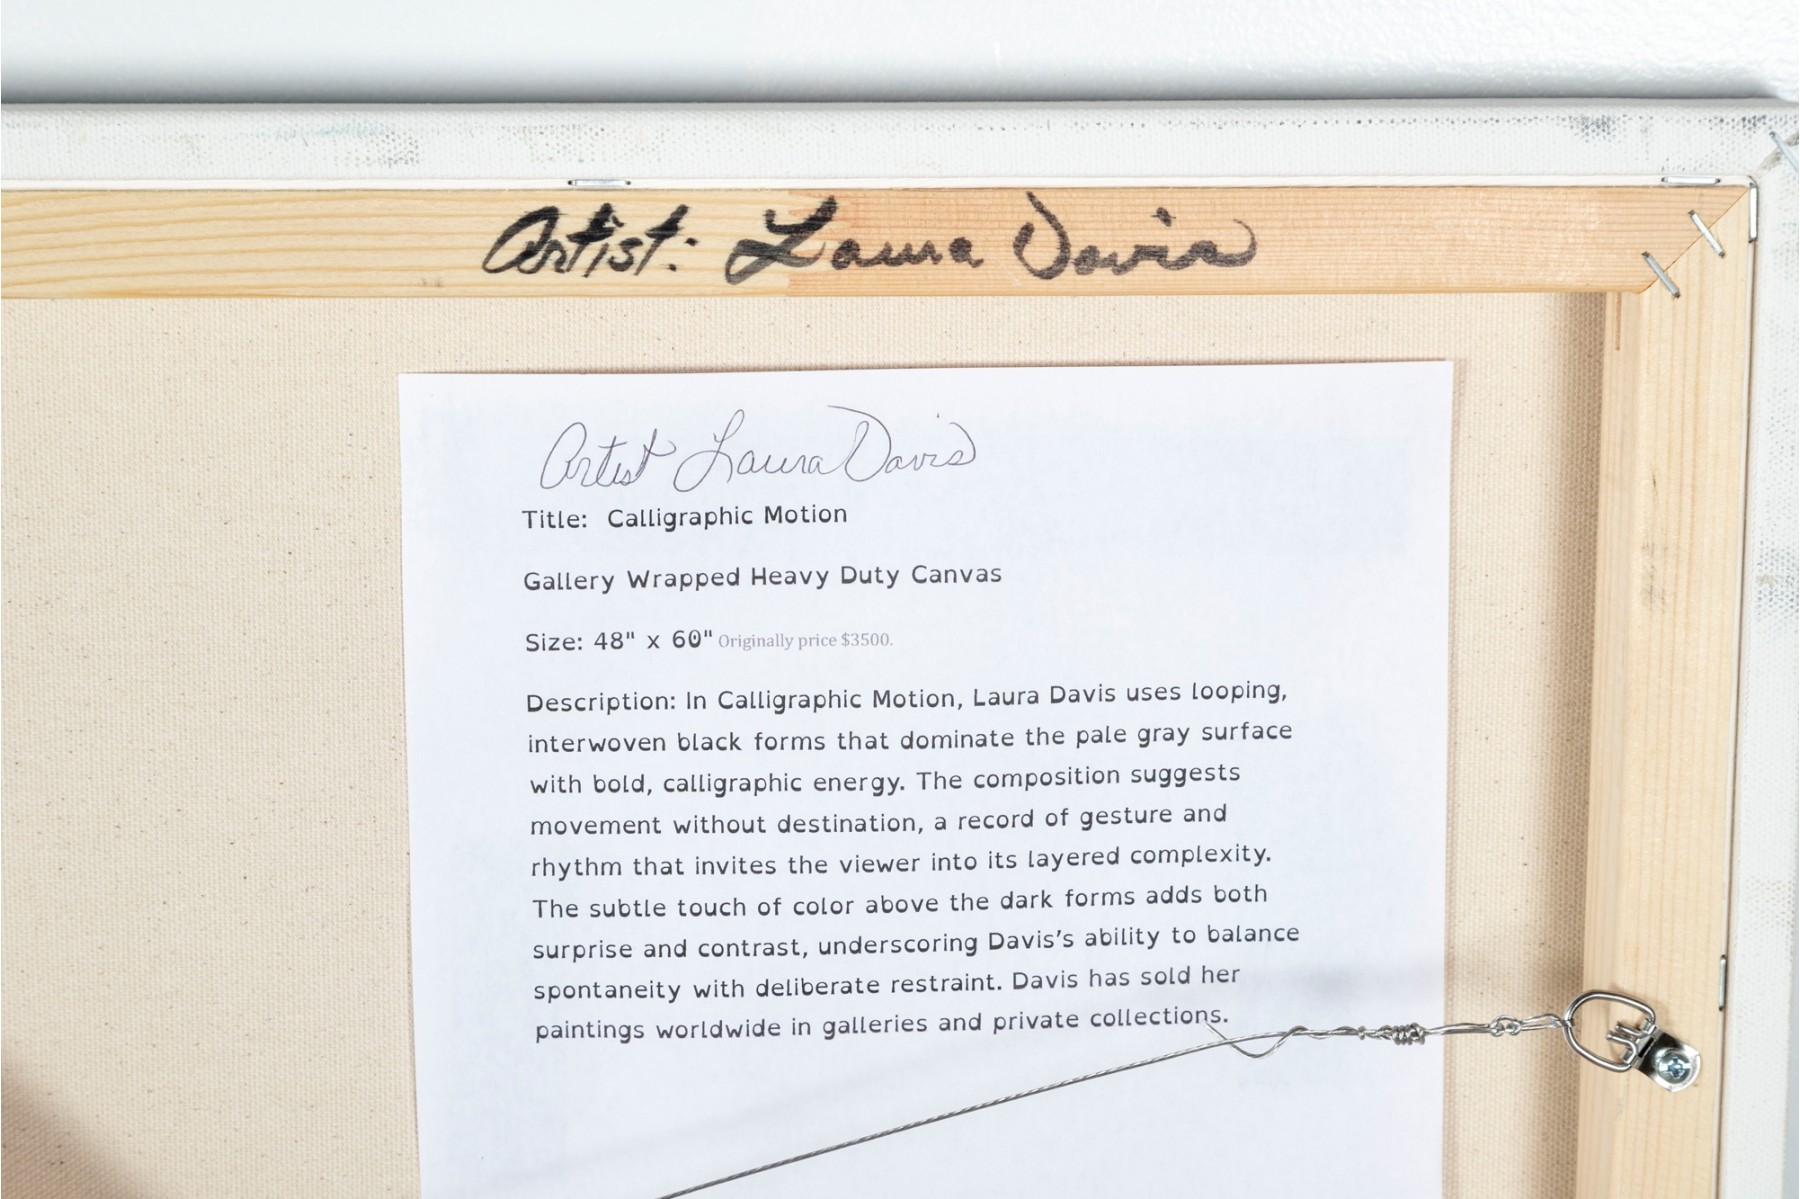 Artist: Laura Davis
Artist Laura Davis
Title: Calligraphic Motion
Gallery Wrapped Heavy Duty Canvas
Size: 48" x 60" Originally price $3500.
Description: In Calligraphic Motion, Laura Davis uses looping,
interwoven black forms that dominate the pale gray surface
with bold, calligraphic energy. The composition suggests
movement without destination, a record of gesture and
rhythm that invites the viewer into its layered complexity.
The subtle touch of color above the dark forms adds both
surprise and contrast, underscoring Davis’s ability to balance
spontaneity with deliberate restraint. Davis has sold her
paintings worldwide in galleries and private collections.